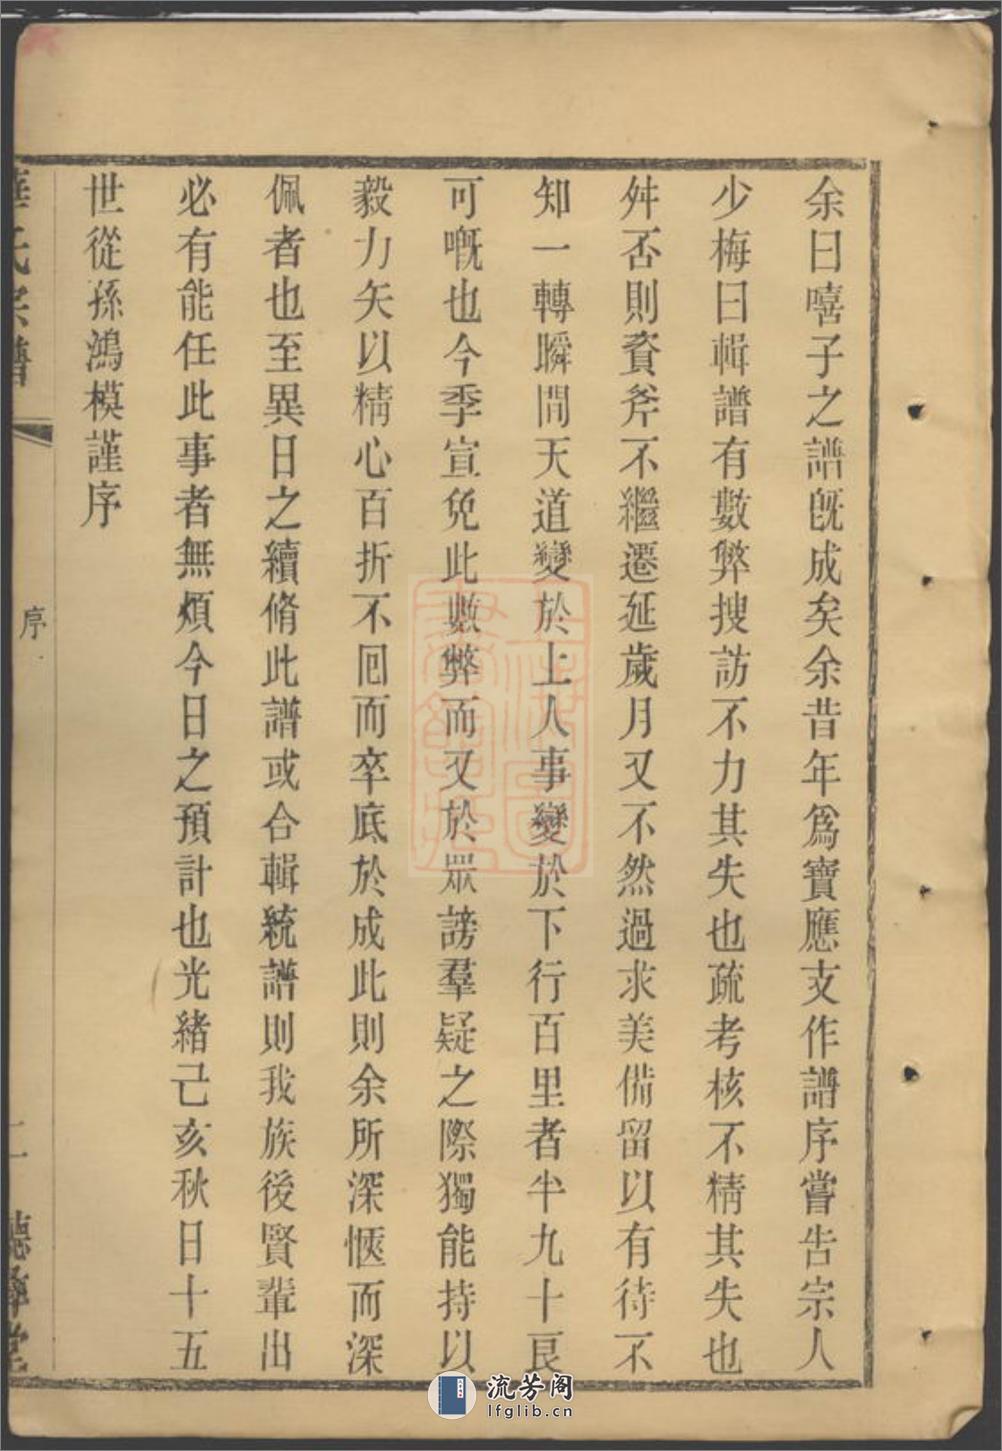 余曰嘻子之譜旣成矣余昔年爲寶應支作譜序嘗告宗人
少梅曰輯譜有數弊搜訪不力其失也疏考核不精其失也
舛否則資斧不繼遷延歲月又不然過求美備留以有待不
知一轉瞬間天道變於上人事變於下行百里者半九十良
可嘅也今季宣免此數弊而又於眾謗羣疑之際獨能持以
毅力矢以精心百折不回而卒底於成此則余所深愜而深
佩者也至異日之續脩此譜或合輯統譜則我族後賢輩出
必有能任此事者無煩今日之預計也光緒己亥秋日十五
世從孫鴻模謹序
華氏宗譜
序
二
聽彝堂
流芳阁
lfglib.cn